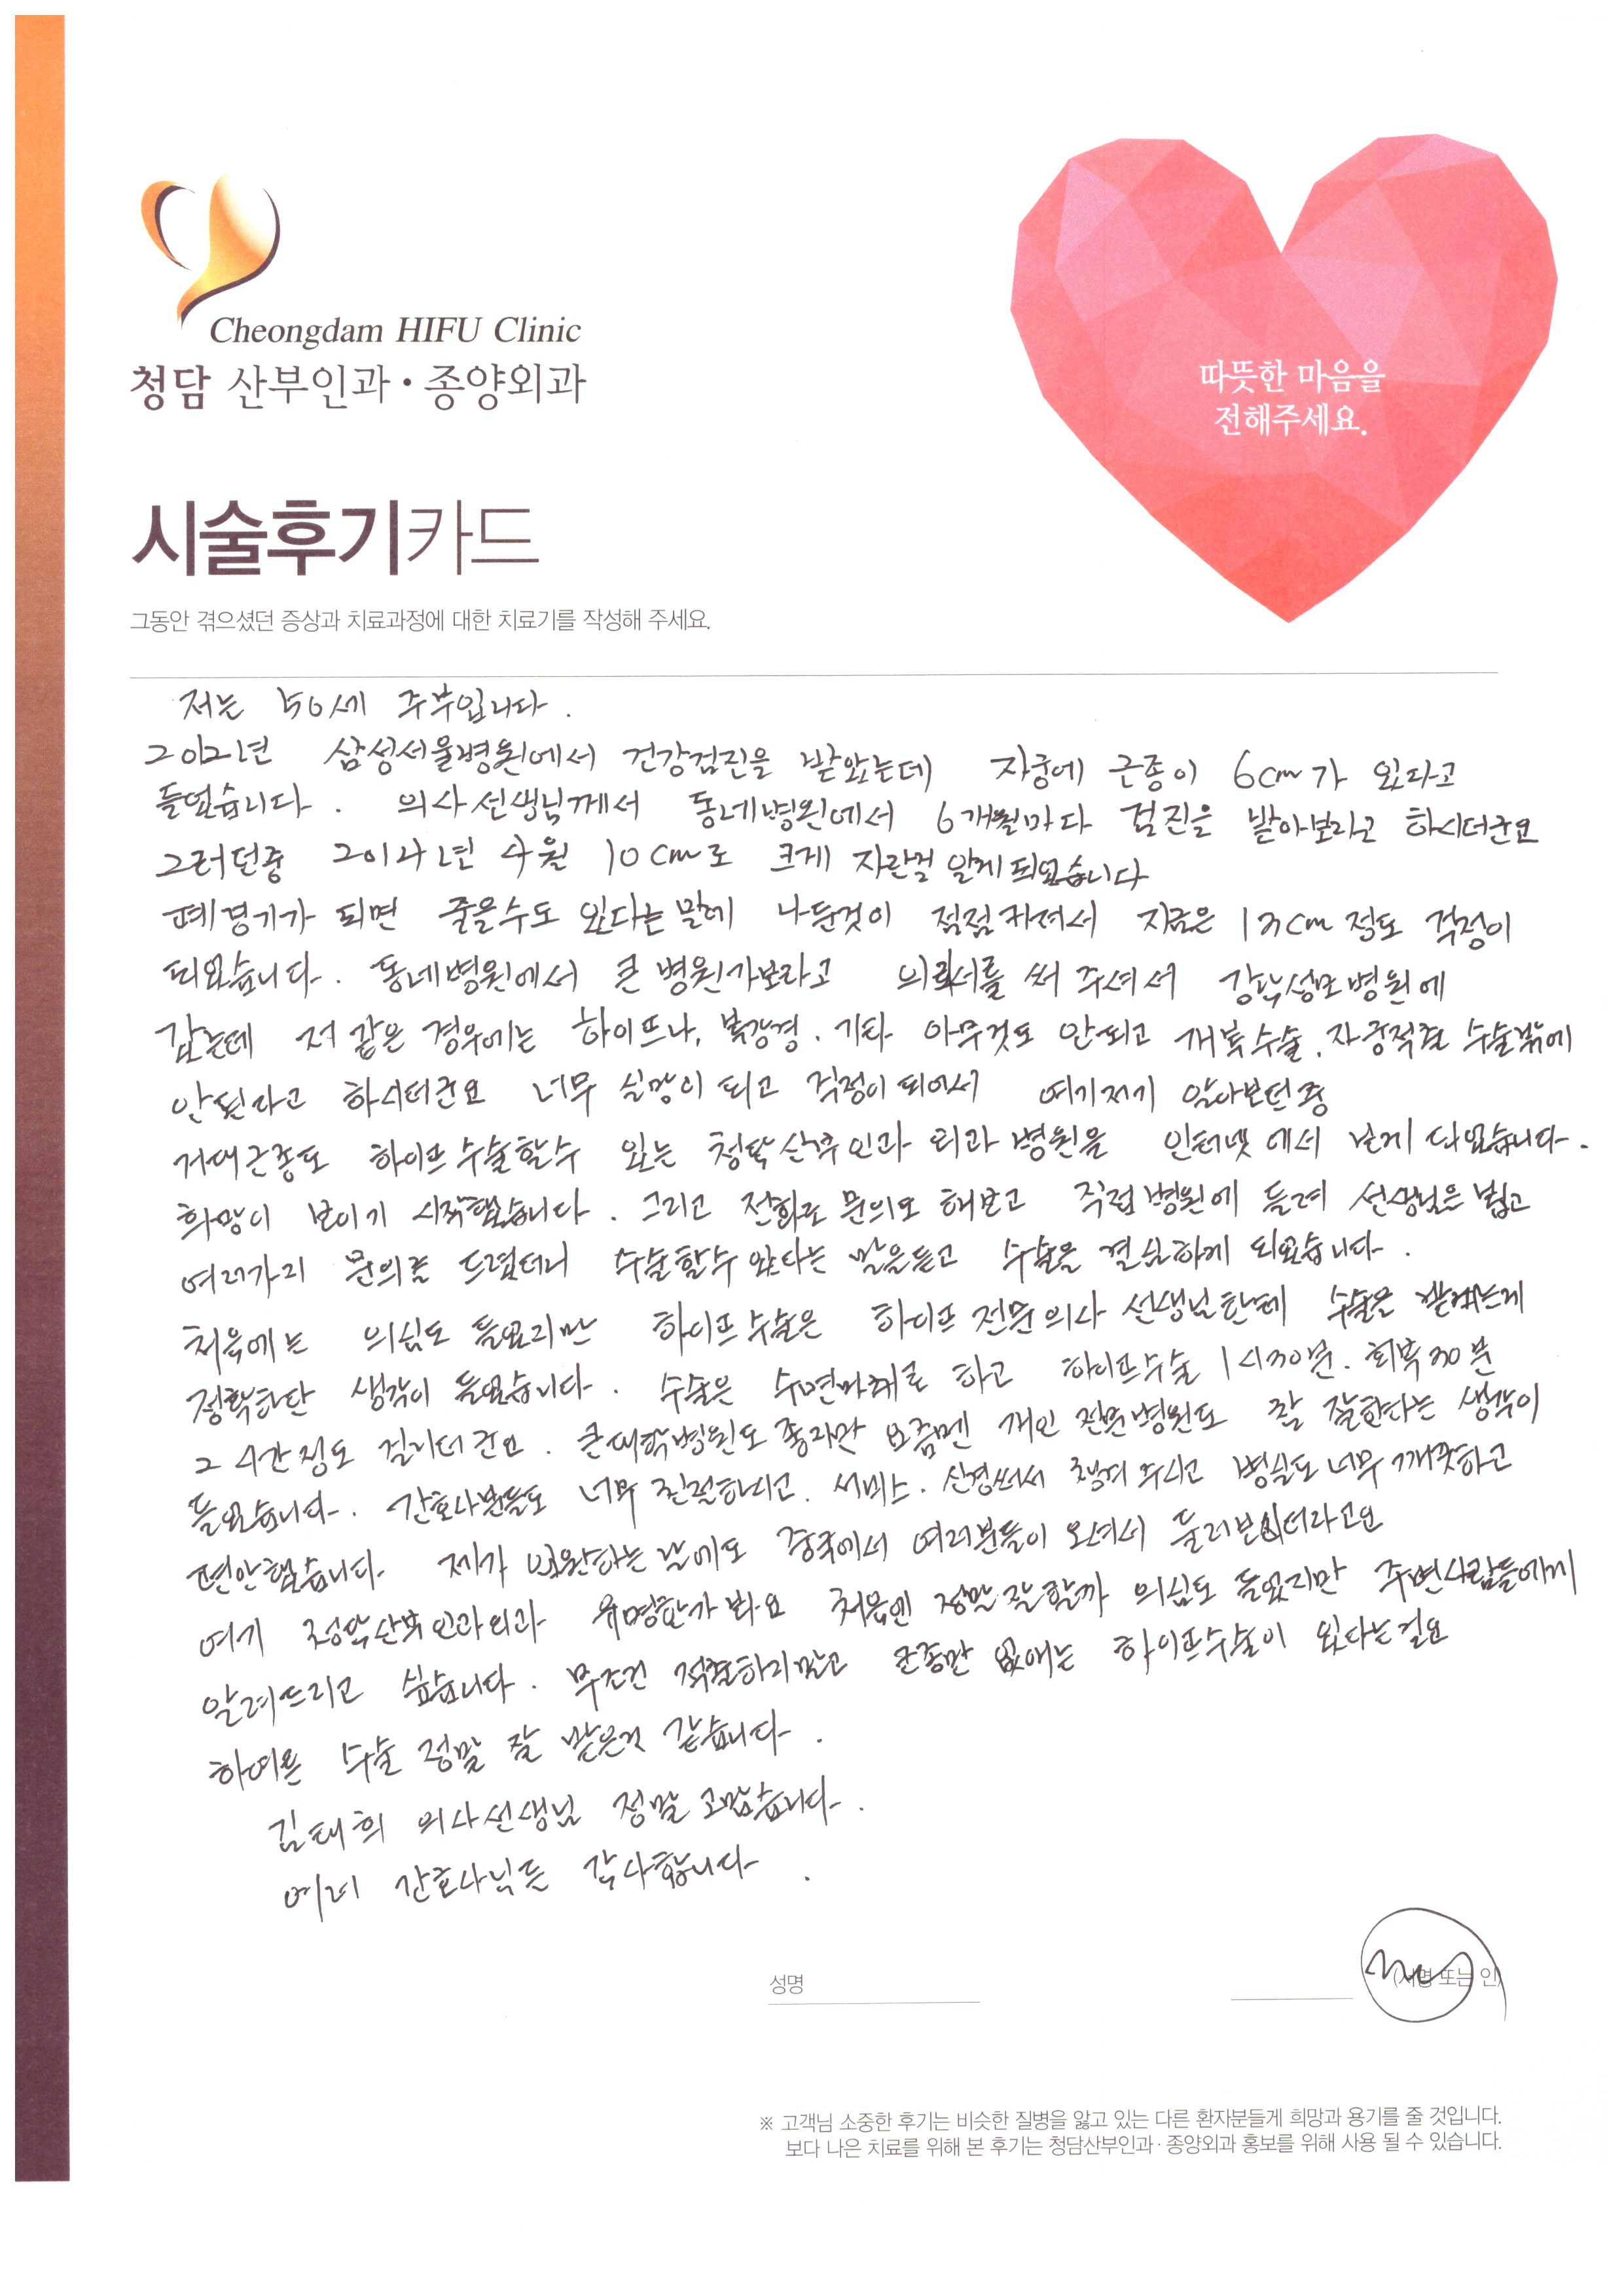 Cheongdam HIFU Clinic
청담 산부인과·종양외과
따뜻한 마음을
전해주세요.
시술후기카드
그동안 겪으셨던 증상과 치료과정에 대한 치료기를 작성해 주세요.
저는 56세 주부입니다.
2012년 삼성서울병원에서 건강검진을 받았는데 자궁에 근종이 6cm가 있다고
들었습니다. 의사선생님께서 동네병원에서 6개월마다 검진을 받아보라고 하시더군요
그러던중 2014년 4월 10cm로 크게 자란걸 알게되었습니다
폐경기가 되면 줄을수도 있다는 말에 나둔것이 점점 커져서 지금은 13cm 정도 걱정이
되었습니다. 동네병원에서 큰 병원가보라고 의뢰서를 써 주셔서 강남성모병원에
갔는데 저 같은 경우에는 하이프나, 복강경. 기타 아무것도 안되고 개복수술, 자궁적출 수술밖에
안된다고 하시더군요 너무 실망이 되고 걱정이 되어서 여기저기 알아보던중
거대근종도 하이프수술할수 있는 청담산부인과 외과 병원을 인터넷에서 보게 되었습니다.
희망이 보이기 시작했습니다. 그리고 전화로 문의도 해보고 직접 병원에 들려 선생님은 뵙고
여러가지 문의를 드렸더니 수술할수 있다는 말을듣고 수술을 결심하게 되었습니다.
처음에는 의심도 들었지만 하이프수술은 하이프 전문의사 선생님한테 수술은
정확하단 생각이 들었습니다. 수술은 수면마취로 하고 하이프수술 1시30분. 회복 30분
2시간정도 걸리더군요. 큰대학병원도 좋지만 요즘엔 개인 전문병원도 잘 잘한다는 생각이
들었습니다. 간호사분들도 너무 친절하시고. 서비스. 신경써서 챙겨 주시고 병실도 너무 깨끗하고
편안했습니다. 제가 입원하는 날에도 중국에서 여러분들이 오셔서 둘러보시더라고요
여기 청담산부인과외과 유명한가 봐요 처음엔 정말잘할까 의심도 들었지만 주변사람들에게
알려드리고 싶습니다. 무조건 적출하지말고 근종만 없애는 하이프수술이 있다는걸요
하여튼 수술 정말 잘 받은것 같습니다.
김태희 의사선생님 정말 고맙습니다.
여러 간호사님들 감사합니다.
성명
(서명 또는 인)
※ 고객님 소중한 후기는 비슷한 질병을 앓고 있는 다른 환자분들게 희망과 용기를 줄 것입니다.
보다 나은 치료를 위해 본 후기는 청담산부인과·종양외과 홍보를 위해 사용 될 수 있습니다.